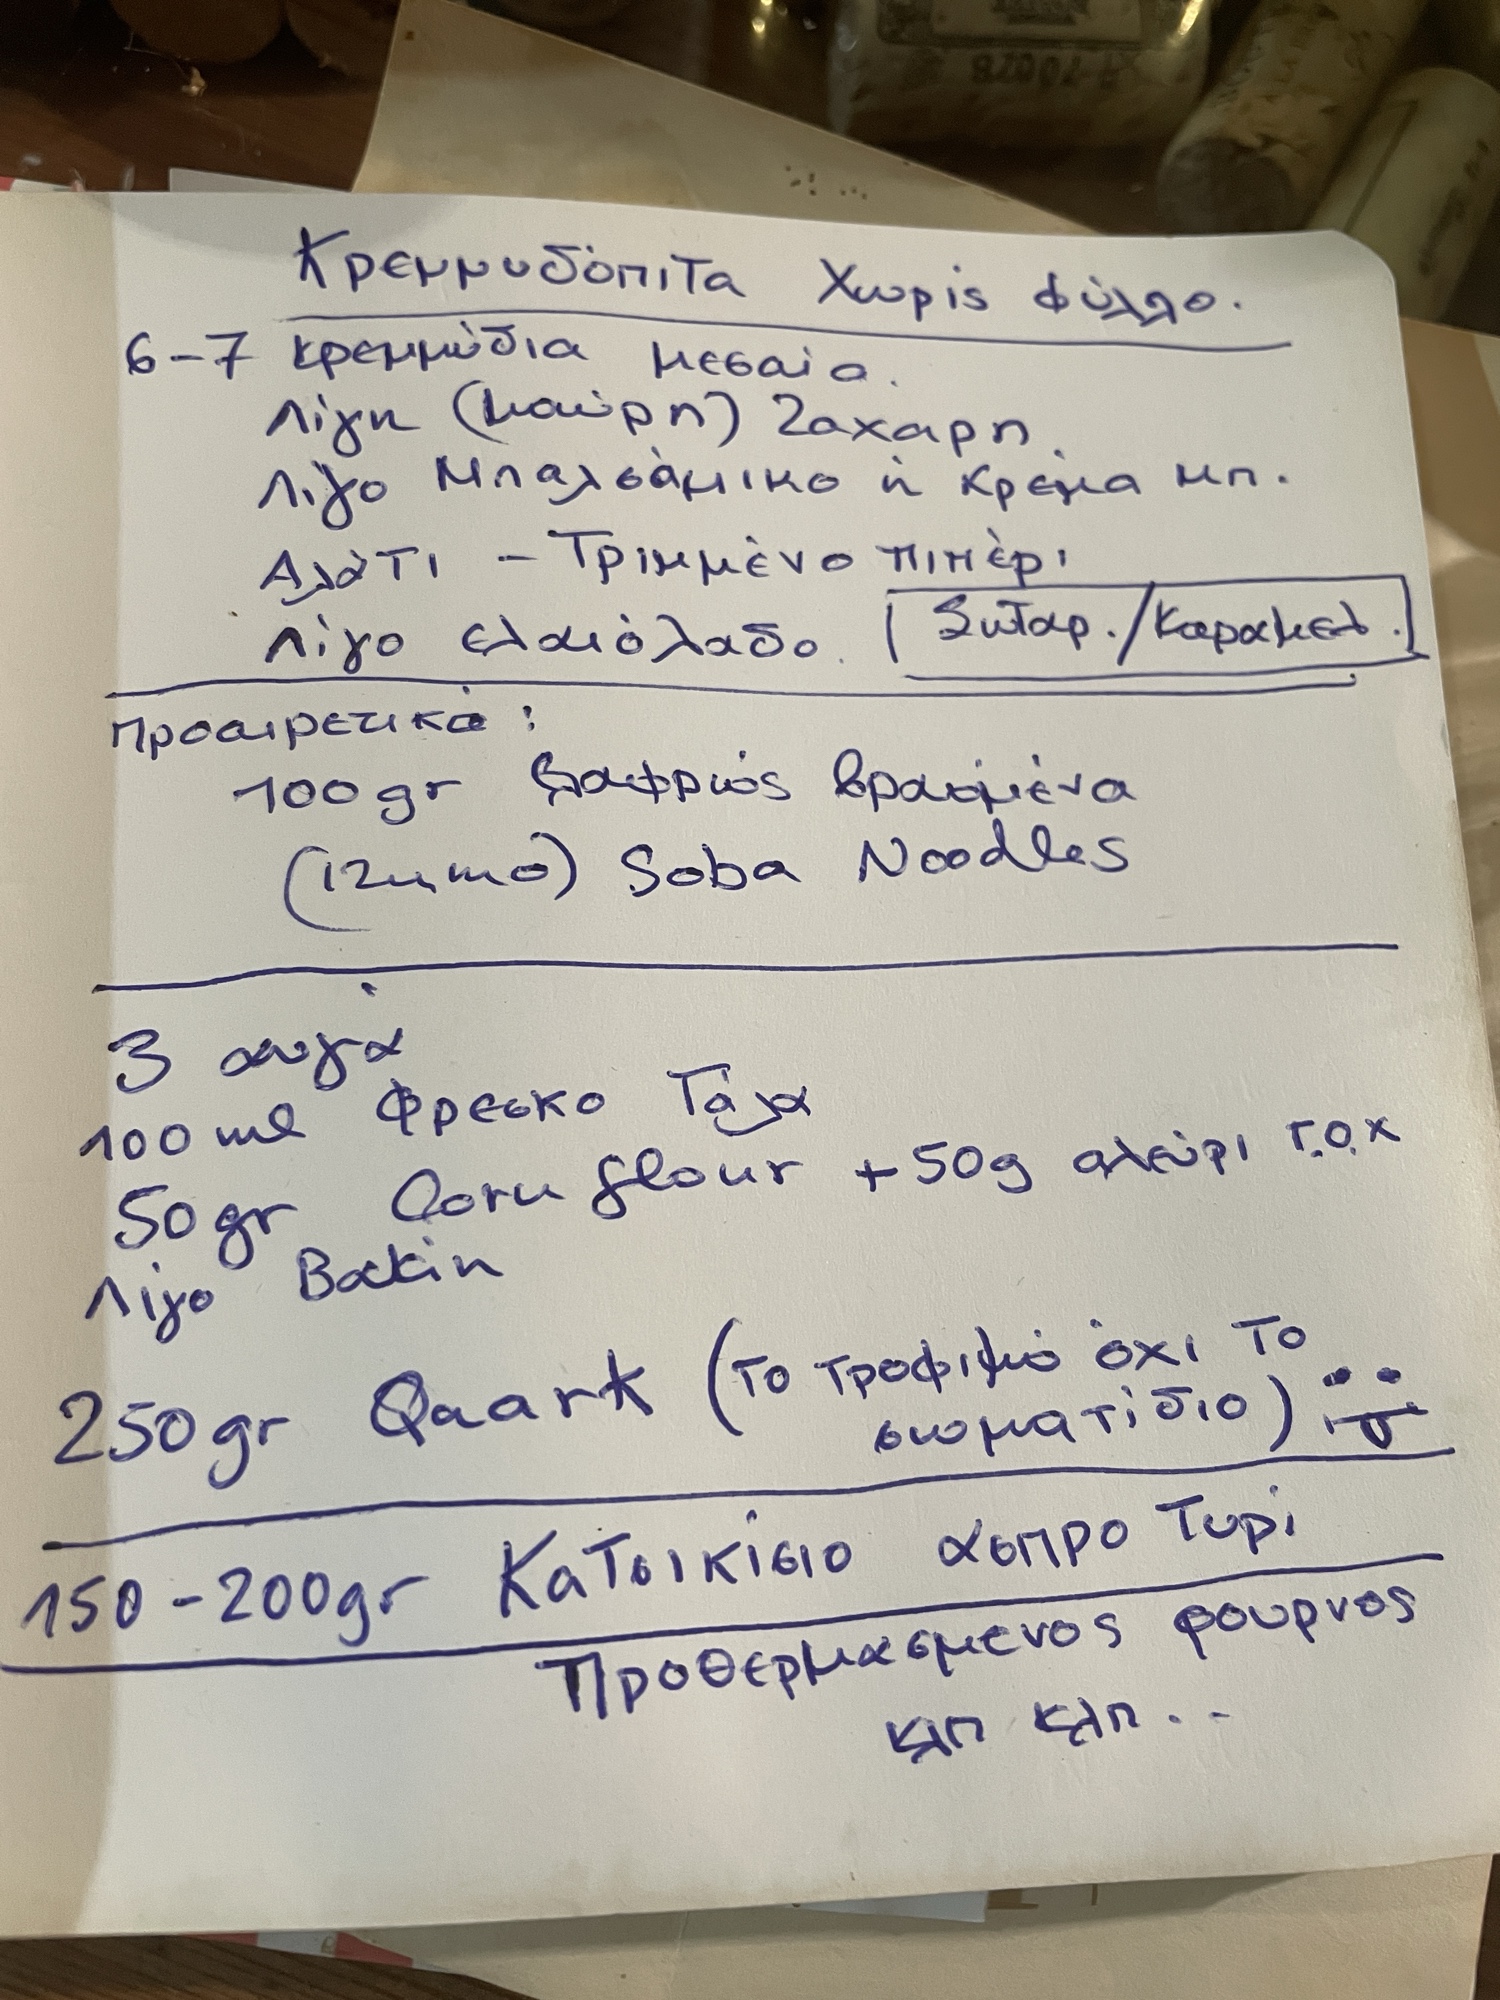 Κρεμμυδόπιτα Χωρίς φύλλο.
6-7 κρεμμύδια μεσαία.
Λίγη (μαύρη) Ζαχαρη
Λίγο Μπαλσάμικο ή κρέμα μπ.
Αλάτι - Τριμμένο πιπέρι
Λίγο ελαιόλαδο. Σωταρ./Καραμελ.
Προαιρετικά:
100gr Ελαφρώς βρασμένα
Soba Noodles
3 αυγά
100ml Φρεσκο Γάλα
50gr Corn flour +50g αλεύρι Γ.Ο.Χ
Λίγο Bakin
250gr Quark (το τροφιμό όχι το
σωματίδιο)
150-200gr Κατσικίσιο ασπρο Τυρί
Προθερμασμενος φουρνος
κλπ κλπ...